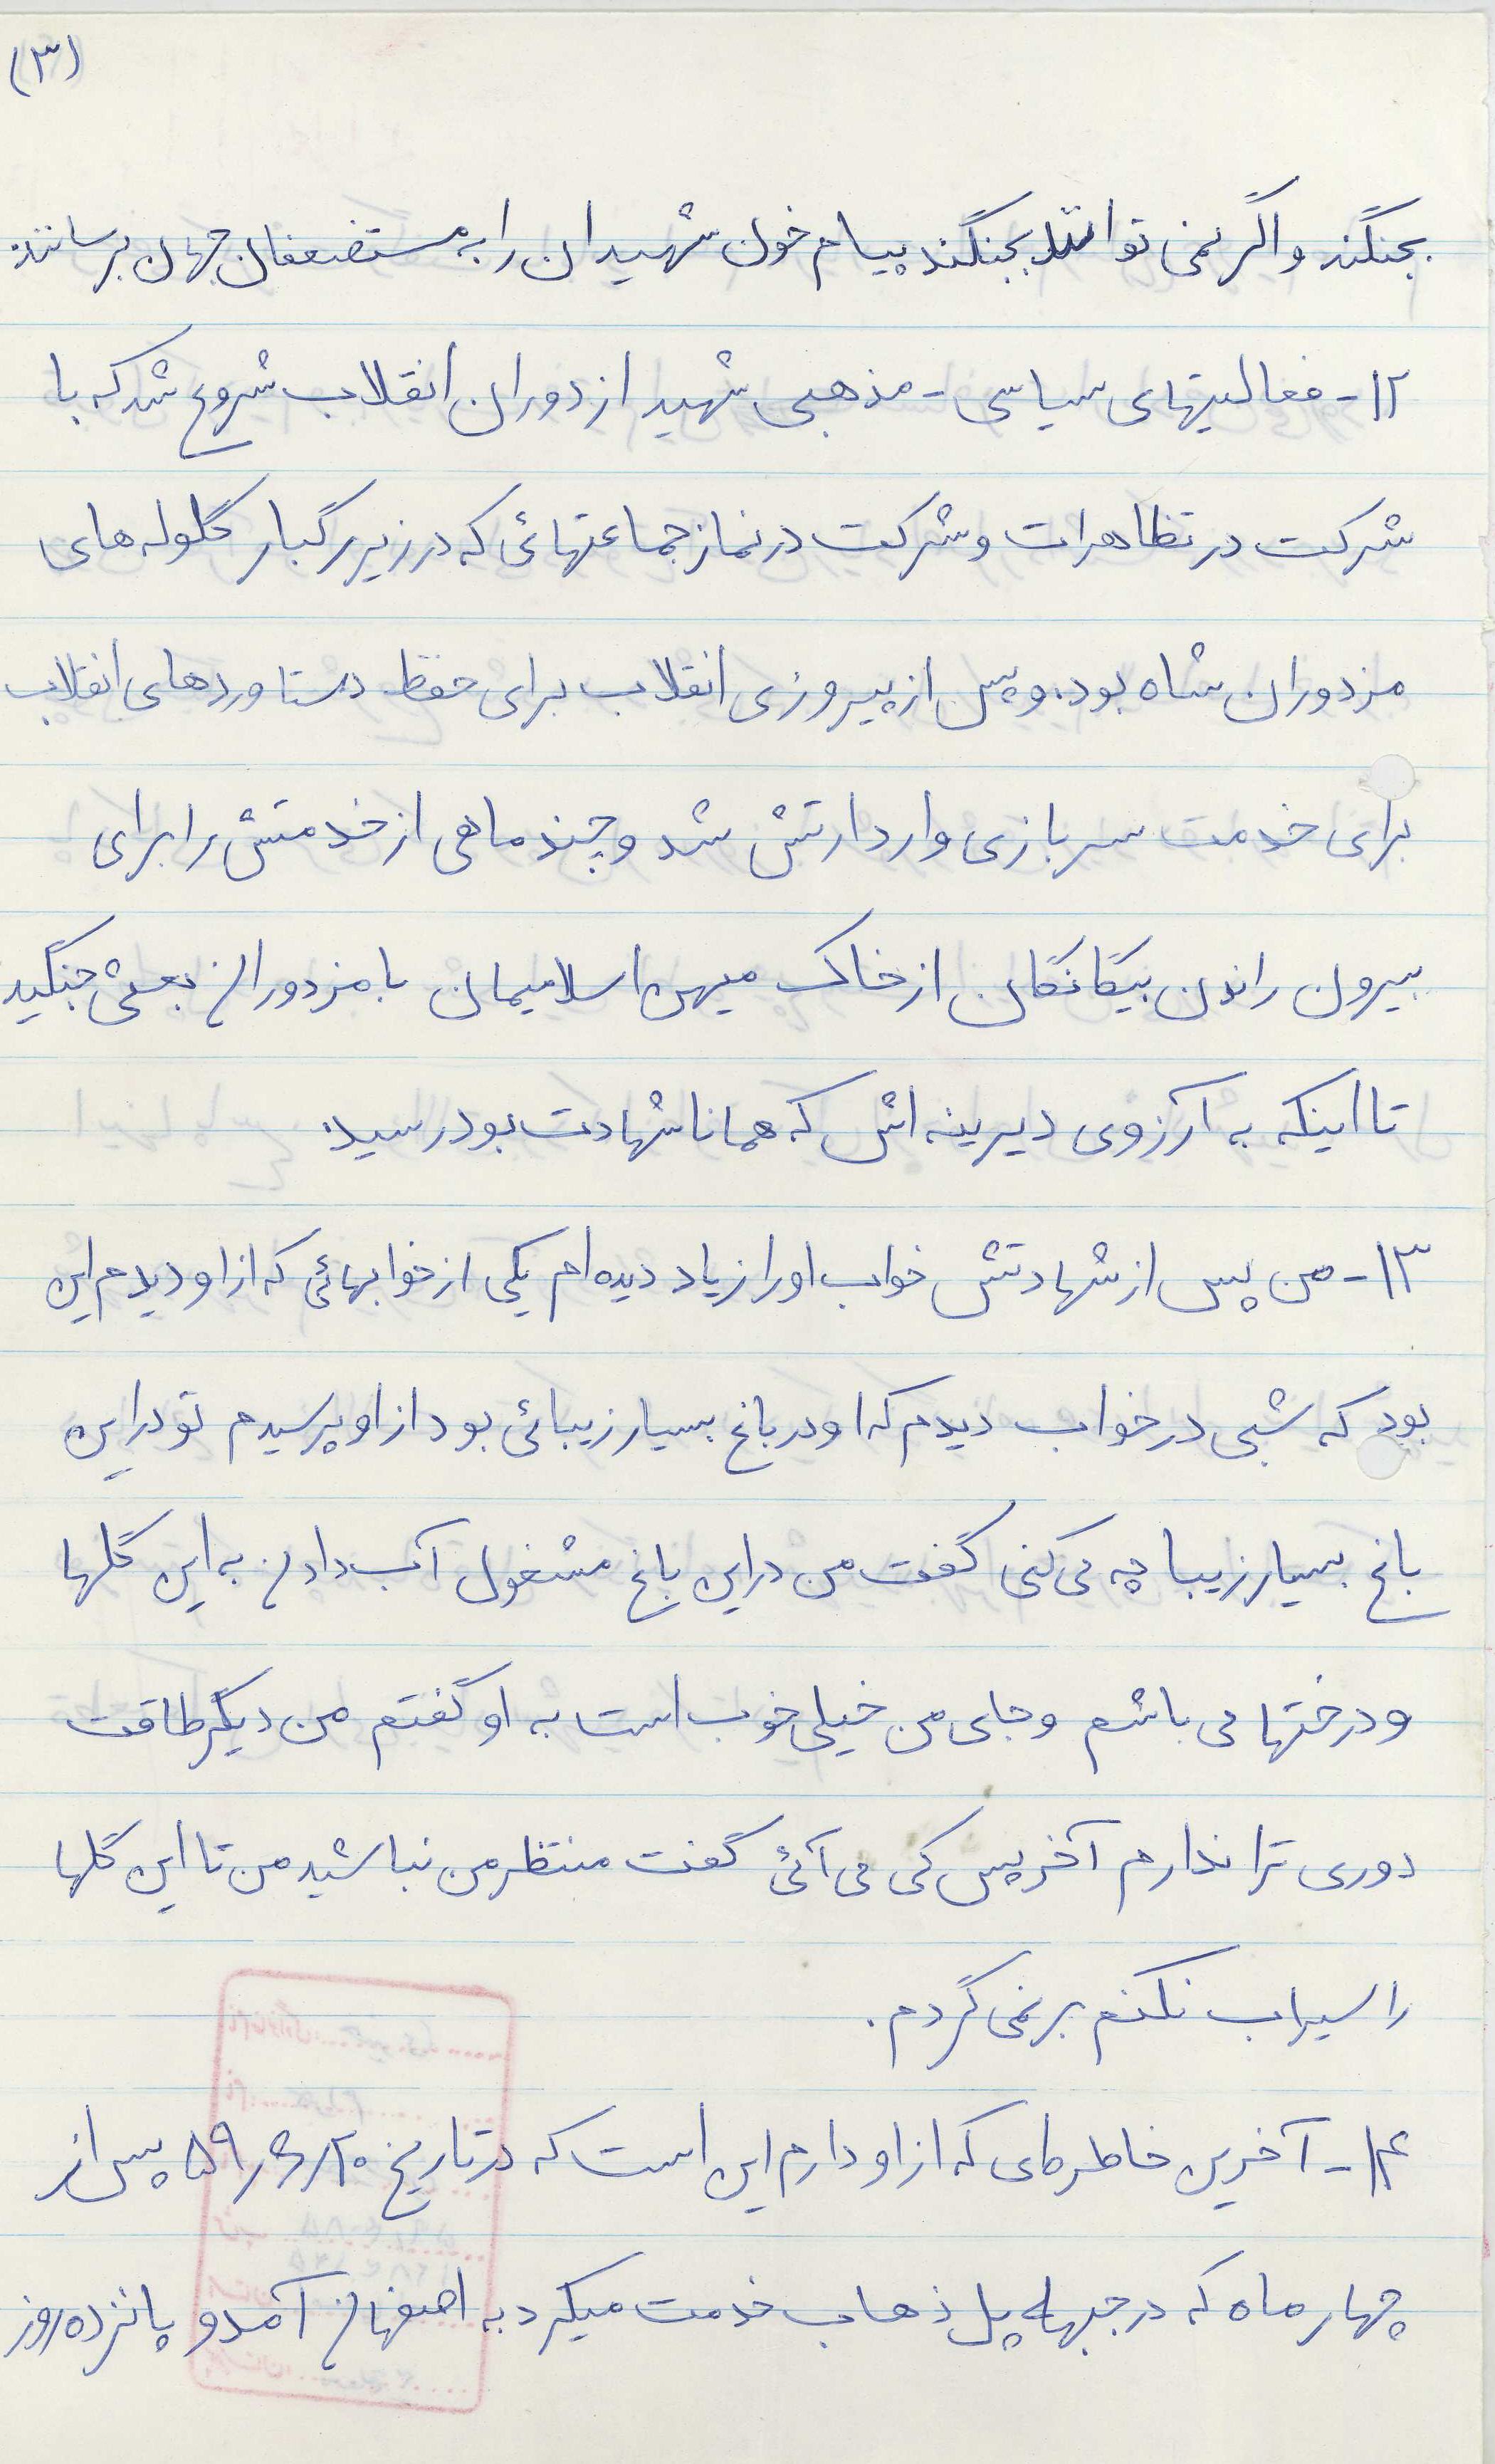 (۳)
بجنگند و اگر نمی توانند بجنگند پیام خون شهیدان را به مستضعفان جهان برسانند.
۱۲- فعالیتهای سیاسی - مذهبی شهید از دوران انقلاب شروع شد که با
شرکت در تظاهرات و شرکت در نماز جماعتهائی که در زیر رگبار گلوله های
مزدوران شاه بود. و پس از پیروزی انقلاب برای حفظ دستاوردهای انقلاب
برای خدمت سربازی وارد ارتش شد و چند ماهی از خدمتش را برای
بیرون راندن بیگانگان از خاک میهن اسلامیمان با مزدوران بعثی جنگید
تا اینکه به آرزوی دیرینه اش که همانا شهادت بود رسید.
۱۳- من پس از شهادتش خواب او را زیاد دیده ام یکی از خوابهائی که از او دیدم این
بود که شبی در خواب دیدم که او در باغ بسیار زیبائی بود از او پرسیدم تو در این
باغ بسیار زیبا چه می کنی گفت من در این باغ مشغول آب دادن به این گلها
و درختها می باشم و جای من خیلی خوب است به او گفتم من دیگر طاقت
دوری ترا ندارم آخر پس کی می آئی گفت منتظر من نباشید من تا این گلها
را سیراب نکنم بر نمی گردم.
۱۴- آخرین خاطره ای که از او دارم این است که در تاریخ ۵۹/۶/۲۰ پس از
چهار ماه که در جبهه پل ذهاب خدمت میکرد به اصفهان آمد و پانزده روز